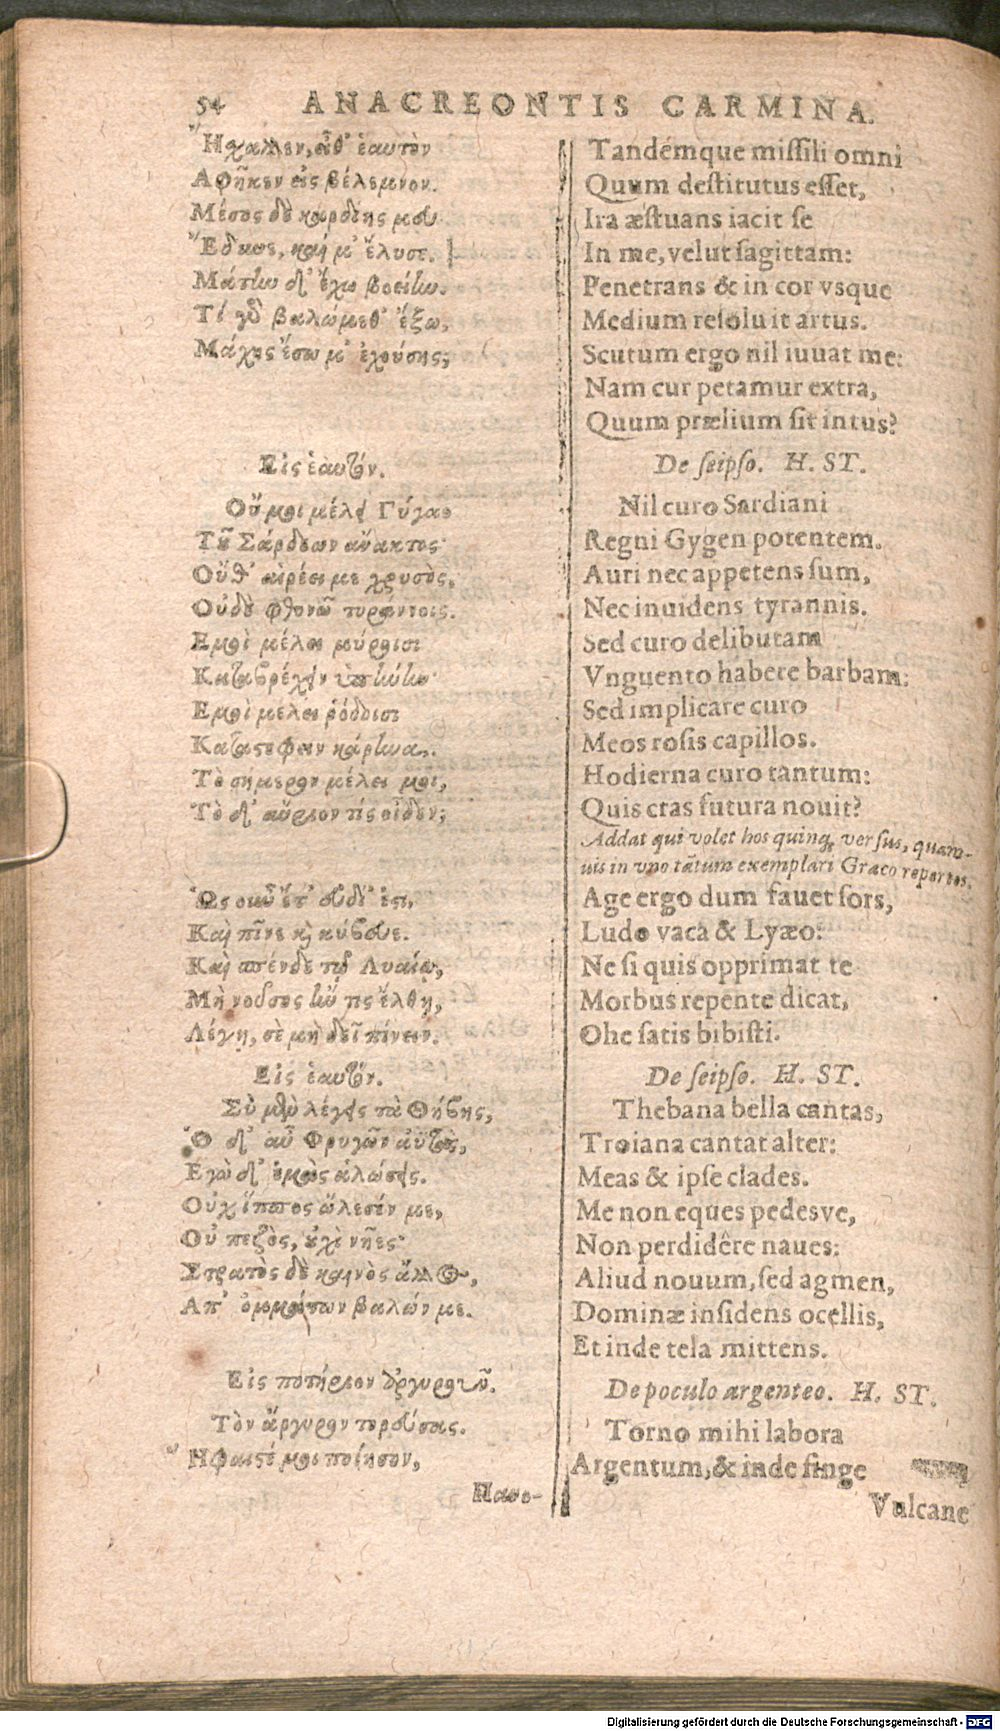 54 ANACREONTIS CARMINA.
Ἤχαλλεν, εἶθ' ἑαυτὸν
Αφῆκεν εἰς βέλεμνον.
Μέσος δὲ καρδίης μου
Ἔδυνε, καὶ μ' ἔλυσε.
Μάτην δ' ἔχω βοείην.
Τί γὸ βαλώμεθ' ἔξω,
Μάχης ἔσω μ' ἐχούσης;
Εἰς ἑαυτόν.
Οὔ μοι μέλει Γύγαο
Τοῦ Σάρδεων ἄνακτος·
Οὔθ' αἱρέει με χρυσὸς,
Οὐδὲ φθονῶ τυράννοις.
Εμοὶ μέλει μύροισι
Καταβρέχειν ὑπήνην·
Εμοὶ μέλει ῥόδοισι
Καταστέφειν κάρηνα.
Τὸ σήμερον μέλει μοι,
Τὸ δ' αὔριον τίς οἶδεν;
Ὡς οὖν ἔτ' εὔδι' ἐστι,
Καὶ πῖνε καὶ κύβευε.
Καὶ σπένδε τῷ Λυαίῳ,
Μὴ νοῦσος ἤν τις ἔλθῃ,
Λέγῃ, σὲ μὴ δεῖ πίνειν.
Εἰς ἑαυτόν.
Σὺ μὲν λέγεις τὰ Θήβης,
Ὁ δ' αὖ Φρυγῶν ἀϋτὰς,
Εγὼ δ' ἐμὰς ἁλώσεις.
Οὐχ ἵππος ὤλεσέν με,
Οὐ πεζὸς, οὐχὶ νῆες·
Στρατὸς δὲ καινὸς ἄλλος,
Απ' ὀμμάτων βαλών με.
Εἰς ποτήριον ἀργυροῦν.
Τὸν ἄργυρον τορεύσας.
Ἥφαιστέ μοι ποίησον,
Πανο-
Tandémque missili omni
Quum destitutus esset,
Ira æstuans iacit se
In me, velut sagittam:
Penetrans & in cor vsque
Medium resoluit artus.
Scutum ergo nil iuuat me:
Nam cur petamur extra,
Quum prælium sit intus?
De seipso. H. ST.
Nil curo Sardiani
Regni Gygen potentem.
Auri nec appetens sum,
Nec inuidens tyrannis.
Sed curo delibutam
Vnguento habere barbam:
Sed implicare curo
Meos rosis capillos.
Hodierna curo tantum:
Quis cras futura nouit?
Addat qui volet hos quinq; versus, quam-
uis in vno tātum exemplari Græco repertos.
Age ergo dum fauet sors,
Ludo vaca & Lyæo:
Ne si quis opprimat te
Morbus repente dicat,
Ohe satis bibisti.
De seipso. H. ST.
Thebana bella cantas,
Troiana cantat alter:
Meas & ipse clades.
Me non eques pedesve,
Non perdidêre naues:
Aliud nouum, sed agmen,
Dominæ insidens ocellis,
Et inde tela mittens.
De poculo argenteo. H. ST.
Torno mihi labora
Argentum, & inde finge
Vulcane
Digitalisierung gefördert durch die Deutsche Forschungsgemeinschaft - DFG